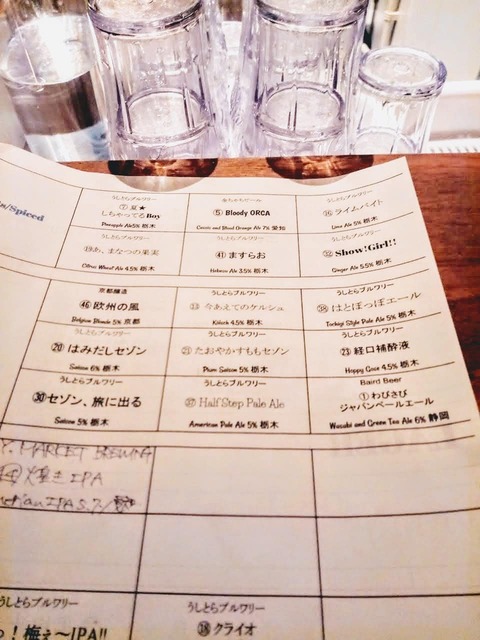 n/Spiced
うしとらブルワリー
① 夏★
しちゃってるBoy
Pineapple Ale5% 栃木
⑤ Bloody ORCA
Cassis and Blood Orange Ale 7% 愛知
うしとらブルワリー
⑯ ライムバイト
Lime Ale 5% 栃木
うしとらブルワリー
あ、まなつの果実
Citrus Wheat Ale 4.5% 栃木
うしとらブルワリー
㊶ ますらお
Habanero Ale 3.5% 栃木
うしとらブルワリー
㉜ Show!Girl!!
Ginger Ale 5.5% 栃木
京都醸造
㊻ 欧州の風
Belgian Blonde 5% 京都
うしとらブルワリー
今あえてのケルシュ
Kolsch 4.5% 栃木
うしとらブルワリー
はとぽっぽエール
Tochigi Style Pale Ale 5% 栃木
うしとらブルワリー
⑳ はみだしセゾン
Saison 6% 栃木
うしとらブルワリー
㉑ たおやかすももセゾン
Plum Saison 5% 栃木
うしとらブルワリー
㉓ 経口補酔液
Hoppy Gose 4.5% 栃木
うしとらブルワリー
㉚ セゾン、旅に出る
Saison 5% 栃木
うしとらブルワリー
Half Step Pale Ale
American Pale Ale 5% 栃木
Baird Beer
① わびさび
ジャパンペールエール
Wasabi and Green Tea Ale 6% 静岡
Y. MARKET BREWING
IPA
IPA 5.7/
うしとらブルワリー
！梅ぇ〜IPA!!
うしとらブルワリー
⑱ クライオ